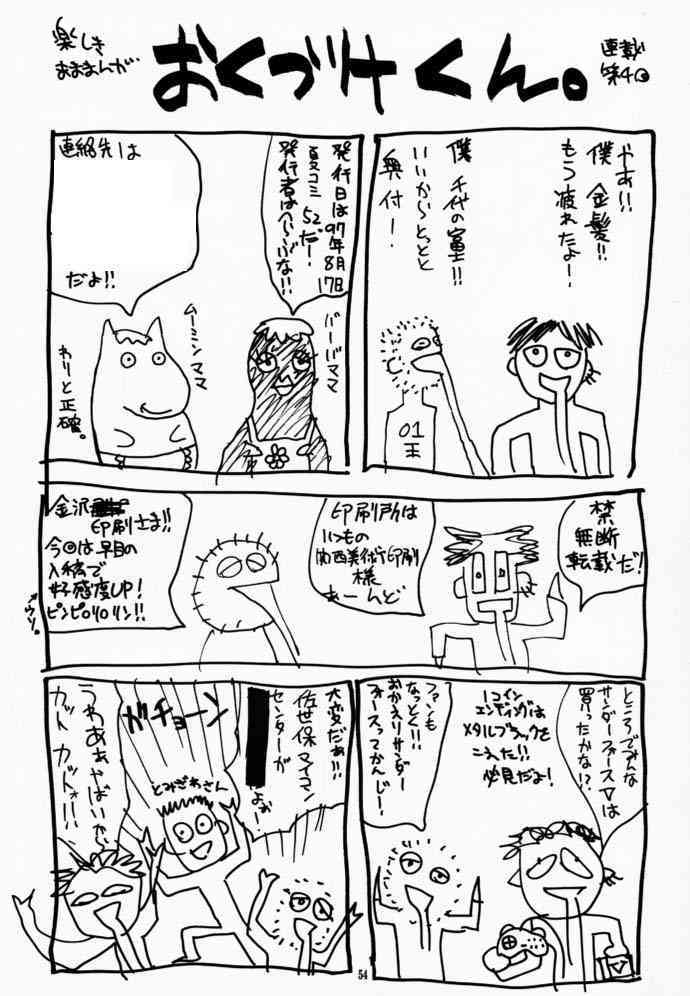 楽しき
おままんが
おくづけくん。
連載
第4回
やあ!!
僕 金髪!!
もう疲れたよー!
僕 千代の富士!!
いいからとっとと
奥付ー!
01
王
発行日は97年8月17日
夏コミ 52だー!
発行者はへらぶな!!
バーバママ
連絡先は
だよ!!
ムーミンママ
わりと正確。
禁
無断
転載だ!
印刷所は
いつもの
関西美術印刷
様
あーんど
金沢印刷さま!!
今回は早目の
入稿で
好感度UP!
ピンピロリロリン!!
ウソ。
ところでみんな
サンダーフォースVは
買ったかな!?
1コイン
エンディングは
メタルブラックを
こえた!!
必見だよ!
ファンも
なっとく!!
おかえりサンダー
フォースってかんじー!
大変だぁ!!
佐世保マイコン
センターが
よかー!
ガチョーン
とみざわさん
うわあぁやばいぃ
カット カットォ!!
54